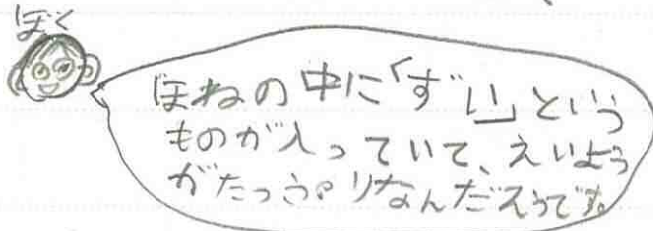 ぼく
ほねの中に「ずい」という
ものが入っていて、えいよう
がたっぷりなんだそうです。